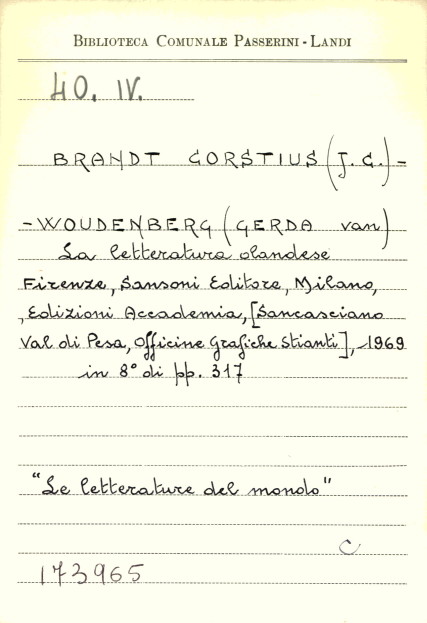 BIBLIOTECA COMUNALE PASSERINI-LANDI
40. IV.
BRANDT CORSTIUS (J.C.) -
- WOUDENBERG (GERDA van)
La letteratura olandese
Firenze, Sansoni Editore, Milano,
, Edizioni Accademia, [Sancasciano
Val di Pesa, Officine Grafiche Stianti], 1969
in 8° di pp. 317
"Le letterature del mondo"
C
173965